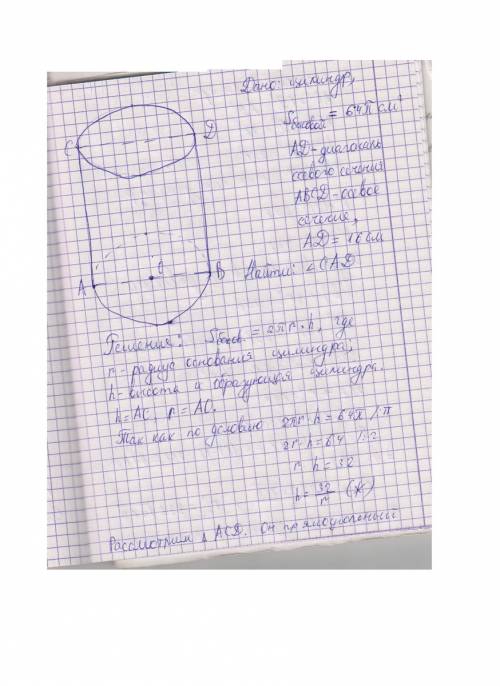 Дано: цилиндр,
Sбоковой = 64π см²
AD - диагональ
осевого сечения
ABCD - осевое
сечение,
AD = 16 см
Найти: ∠CAD
C
D
A
O
B
Решение: Sбоков. = 2πr · h, где
r - радиус основания цилиндра,
h - высота и образующая цилиндра.
h = AC, r = AO.
Так как по условию 2πr · h = 64π /:π
2r · h = 64 /:2
r · h = 32
h = 32/r (*)
Рассмотрим Δ ACD. Он прямоугольный